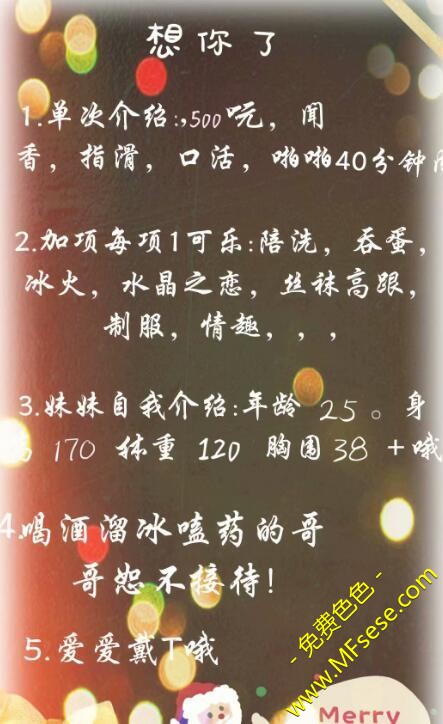 想你了
1.单次介绍:,500吭，闻
香，指滑，口活，啪啪40分钟
2.加项每项1可乐:陪洗，吞蛋，
冰火，水晶之恋，丝袜高跟，
制服，情趣，，，
3.妹妹自我介绍:年龄 25。身
高 170 体重 120 胸围38 +哦
4.喝酒溜冰嗑药的哥
哥恕不接待!
5.爱爱戴T哦
- 免费色色 -
www.MFsese.com
Merry